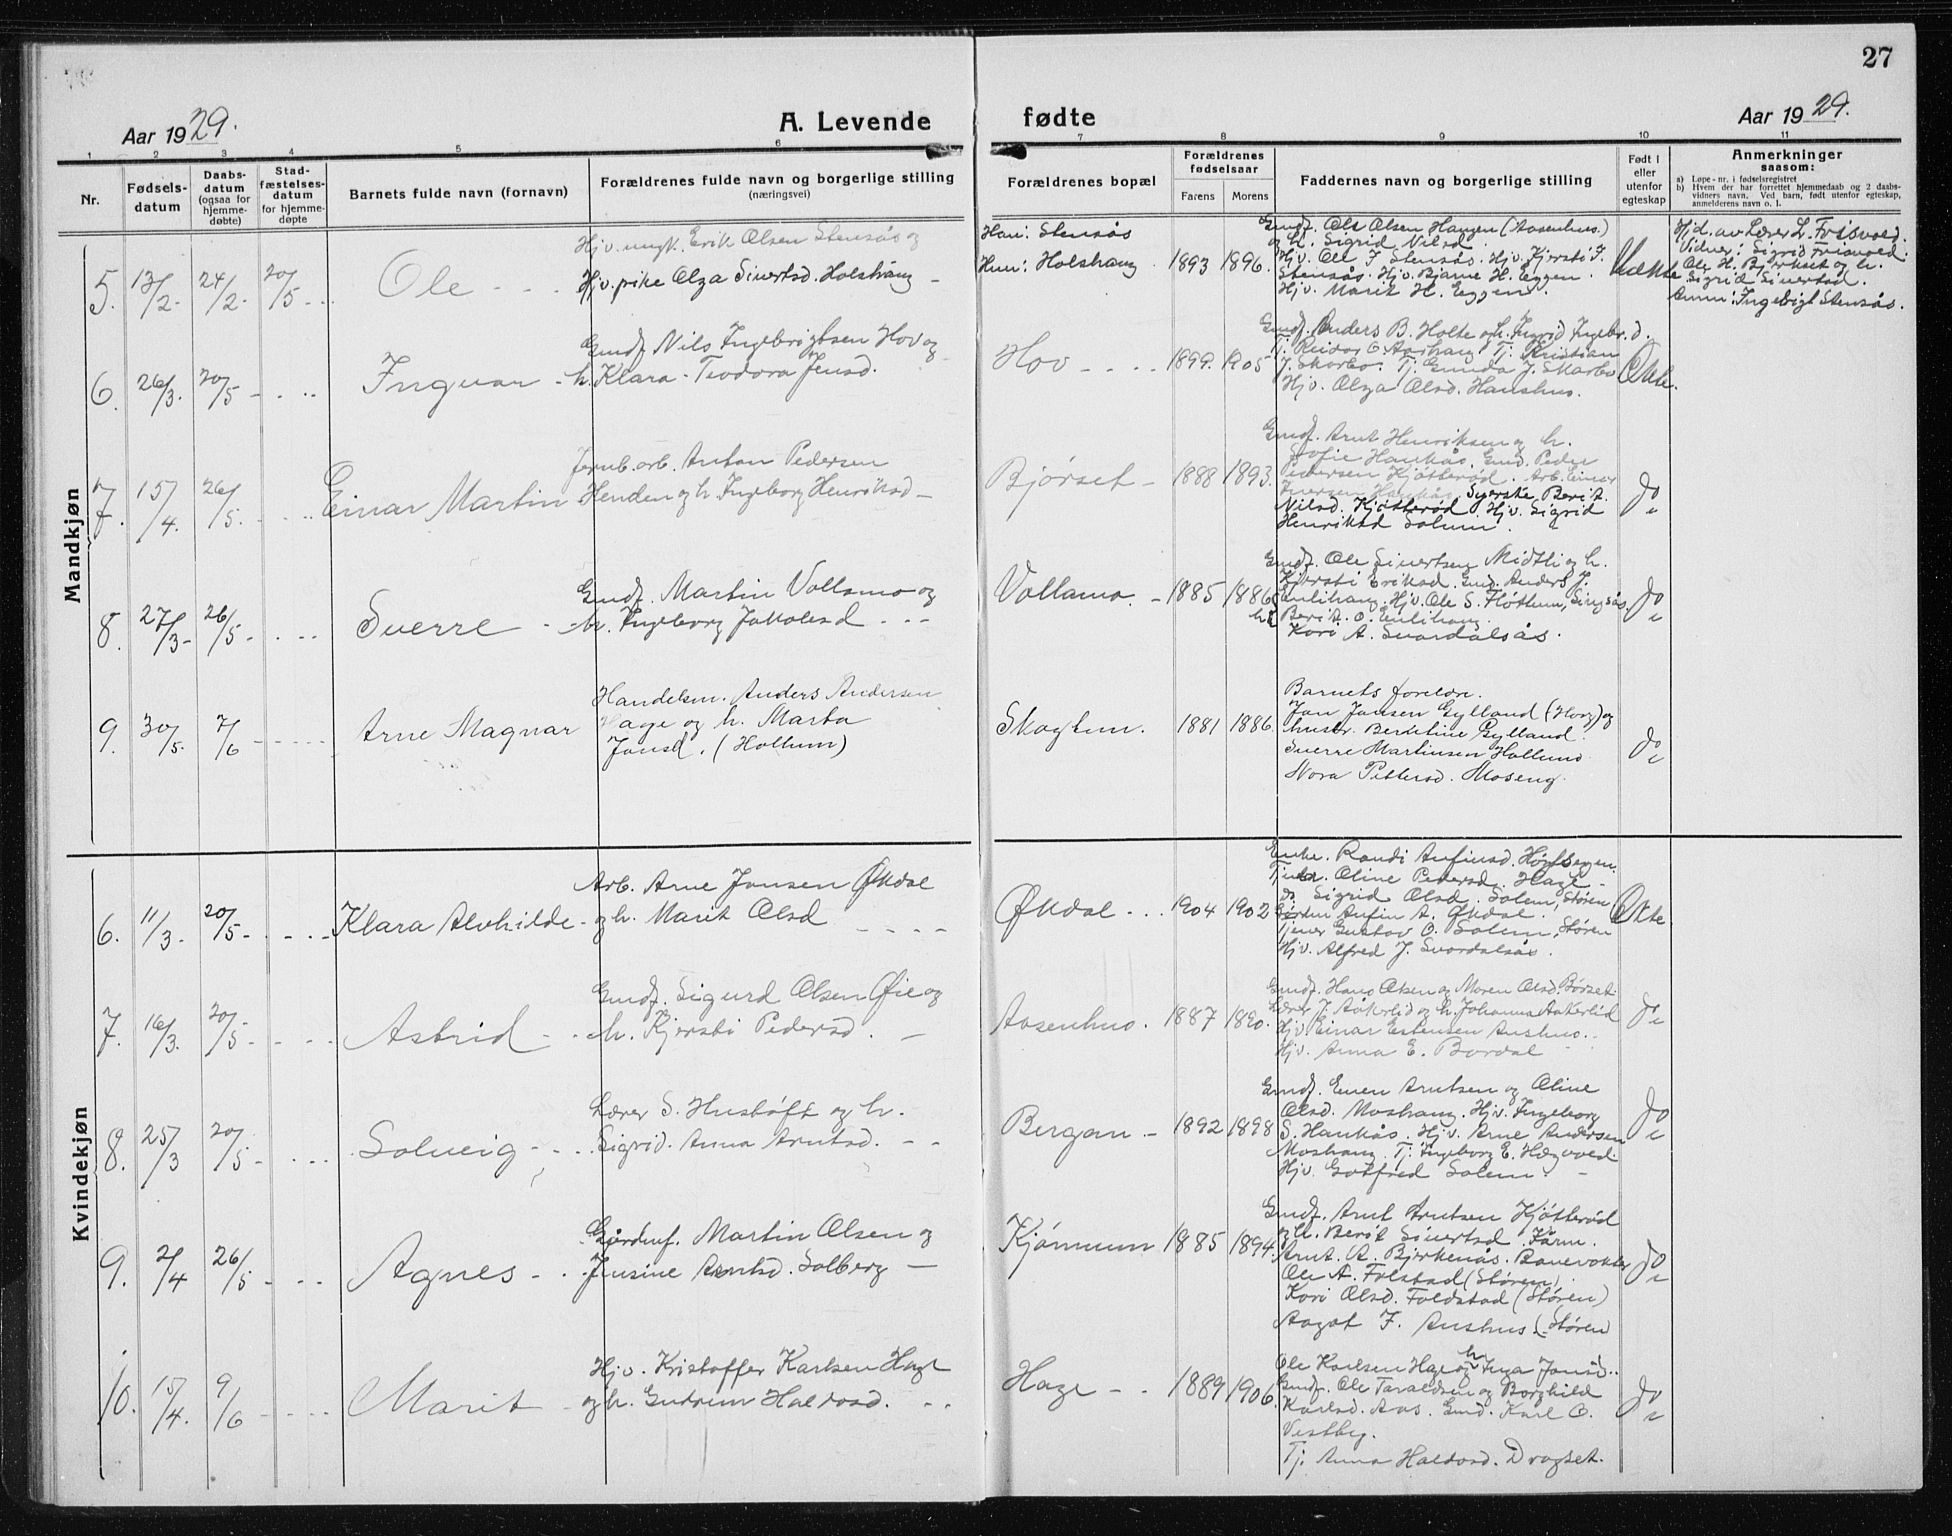 27
Aar 1929.
A. Levende fødte
Aar 1929.
1 2 3 4 5 6 7 8 9 10 11
Nr.
Fødsels-
datum
Daabs-
datum
(ogsaa for
hjemme-
døbte)
Stad-
fæstelses-
datum
for hjemme-
døpte
Barnets fulde navn (fornavn)
Forældrenes fulde navn og borgerlige stilling
(næringsvei)
Forældrenes bopæl
Forældrenes
fødselsaar
Farens Morens
Faddernes navn og borgerlige stilling
Født i
eller
utenfor
egteskap
Anmerkninger
saasom:
a) Løpe-nr. i fødselsregistret
b) Hvem der har forrettet hjemmedaab og 2 daabs-
vidners navn. Ved barn, født utenfor egteskap,
anmelderens navn o. l.
Mandkjøn
5. 13/2. 24/2. 20/5 Ole
Hjv. ungk. Erik Olsen Stensås og
Hjv. pike Olga Sivertsd. Holshaug
Han: Stensås
Hun: Holshaug 1893 1896.
Gmdf. Ole Olsen Haugen (Aasenhus.)
og h. Sigrid Nilsd.
Hjv. Ole J. Stensås. Hjv. Kjersti J.
Stensås. Hjv. Bjarne H. Eggen.
Hjv. Marit H. Eggen.
Uekte
Hjd. av Lærer L. Frisvold.
Vidner: Sigrid Frisvold.
Ole H. Bjerkset og h.
Sigrid Sivertsd.
Anm: Ingebrigt Stensås.
6. 26/3. 20/5 Ingvar
Gmdf. Nils Ingebrigtsen Hov og
h. Klara Teodora Jensd.
Hov 1899. 1905
Gmdf. Anders B. Holte og h. Ingrid Ingebr.d.
Tj. Reidar O. Aashaug Tj. Kristian
J. Skarbo. Tj. Gunda J. Skarbo
Hjv. Olga Olsd. Haukhus.
Ekte.
7. 15/4. 26/5. Einar Martin
Jernb.arb. Anton Pedersen
Henden og h. Ingeborg Henriksd
Bjørset 1888 1893.
Gmdf. Arnt Henriksen og h.
Sofie Haukås. Gmd. Peder
Pedersen Kjøtterød. Arb. Einar
Iversen Haukås. Syerske Berit
Nilsd. Kjøtterød. Hjv. Sigrid
Henriksd Solum.
do
8. 27/3 26/5 Sverre
Gmdf. Martin Vollamo og
h. Ingeborg Jakobsd
Vollamo. 1885 1886
Gmdf. Ole Sivertsen Midtli og h.
Kjersti Eriksd. Gmd. Anders J.
Enlihaug. Hjv. Ole S. Fløttum, Singsås.
h. Berit O. Enlihaug.
Kari A. Svardalsås.
do
9. 30/5. 7/6 Arne Magnar
Handelsm. Anders Andersen
Hage og h. Marta
Jonsd. (Hollum)
Skogtun. 1881 1886.
Barnets foreldre.
Jon Jonsen Gylland (Horg) og
hustr. Berketine Gylland.
Sverre Martinsen Hollum
Nora Pettersd. Moseng.
do
Kvindekjøn
6. 11/3. 20/5 Klara Alvhilde
Arb. Arne Jonsen Økdal
og h. Marit Olsd
Økdal 1904 1902
Enke. Randi Anfinsd. Høgseggen.
Oline Pedersd. Hage
do. Sigrid Olsd. Solem, Støren
Anfin A. Økdal.
Tjener Gustav O. Solem, Støren
Hjv. Alfred J. Svardalsås.
Ekte.
7. 16/3. 20/5 Astrid
Gmdf. Sigurd Olsen Øie og
h. Kjersti Pedersd.
Aasenhus. 1887 1890.
Gmdf. Hans Olsen og Maren Olsd. Børset.
Lærer J. Aakerlid og h. Johanna Aakerlid
Hjv. Einar Estensen Aushus.
Hjv. Anna E. Bordal
do
8. 25/3 20/5 Solveig
Lærer S. Hustøft og h.
Sigrid Anna Arntsd.
Bergan 1892 1898
Gmdf. Even Arntsen og Oline
Olsd. Moshaug. Hjv. Ingeborg
S. Haukås. Hjv. Arne Andersen
Moshaug. Tj. Ingeborg E. Hegvold.
Hjv. Gotfred Solem.
do
9. 2/4 26/5 Agnes
Gårdmf. Martin Olsen og
Jensine Arntsd. Solberg
Kjønmum 1885 1894.
Gmdf. Arnt Arntsen Kjøtterød
og h. Berit Sivertsd. Farm.
Arnt. A. Bjerkenås. Banevokter
Ole A. Folstad (Støren).
Kari Olsd. Foldstad (Støren)
Aagot F. Aushus (Støren)
do
10. 15/4. 9/6 Marit
Hjv. Kristoffer Karlsen Hage
og h. Gudrun Haldosd.
Hage 1889 1906.
Ole Karlsen Hage og h. Inga Jonsd.
Gmdf. Ole Taraldsen og Borghild
Karlsd. Aas. Gmd. Karl O.
Vestby.
Tj. Anna Haldosd. Dragset.
do